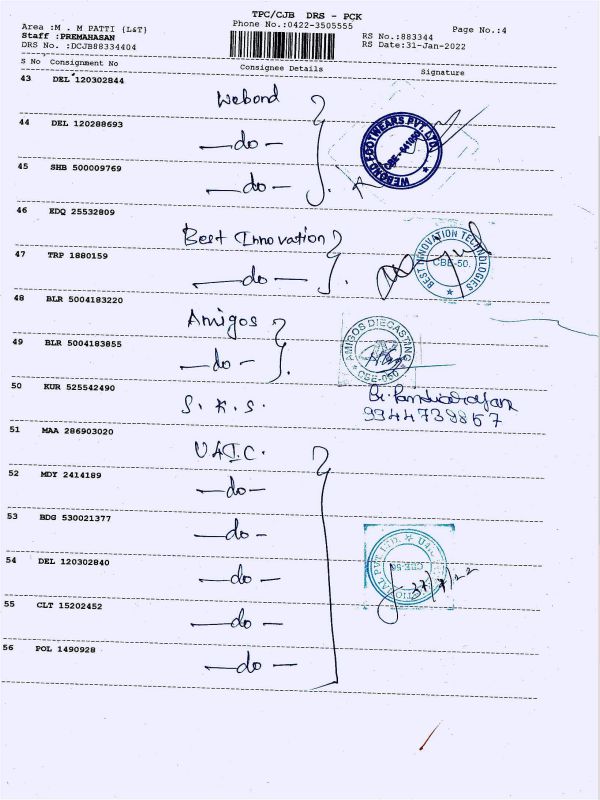 TPC/CJB DRS - PCK
Area :M . M PATTI {L&T}
Phone No.:0422-3505555
Page No.:4
Staff :PREMAHASAN
RS No.:883344
DRS No. :DCJB88334404
RS Date:31-Jan-2022
S No Consignment No Consignee Details Signature
43 DEL 120302844
Webond
44 DEL 120288693
—do—
WEBOND FOOTWEARS PVT. LTD.
CBE - 641050
45 SHB 500009769
—do—
46 EDQ 25532809
Best Innovation
47 TRP 1880159
—do—
BEST INNOVATION TECHNOLOGIES
CBE-50.
48 BLR 5004183220
Amigos
49 BLR 5004183855
—do—
AMIGOS DIECASTING
CBE-050
50 KUR 525542490
S. K. S.
9944739857
51 MAA 286903020
52 MDY 2414189
—do—
53 BDG 530021377
—do—
54 DEL 120302840
—do—
55 CLT 15202452
—do—
56 POL 1490928
—do—